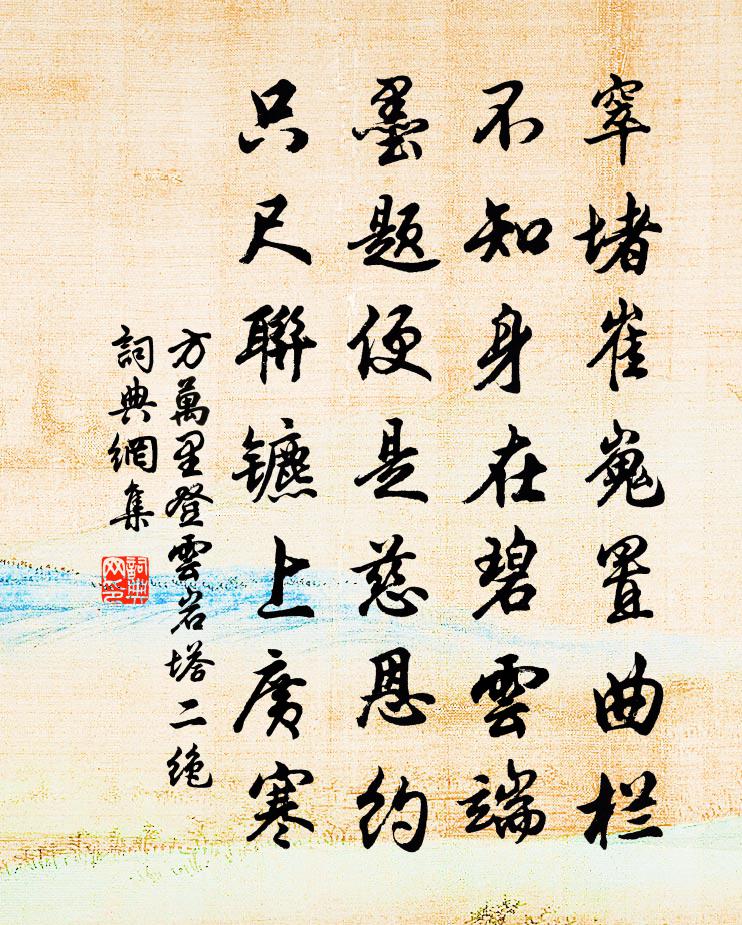 窣堵崔嵬置曲栏
不知身在碧雲端
墨题便是慈恩约
只尺聯镳上廣寒
方萬里登雲岩塔二绝
詞典網集